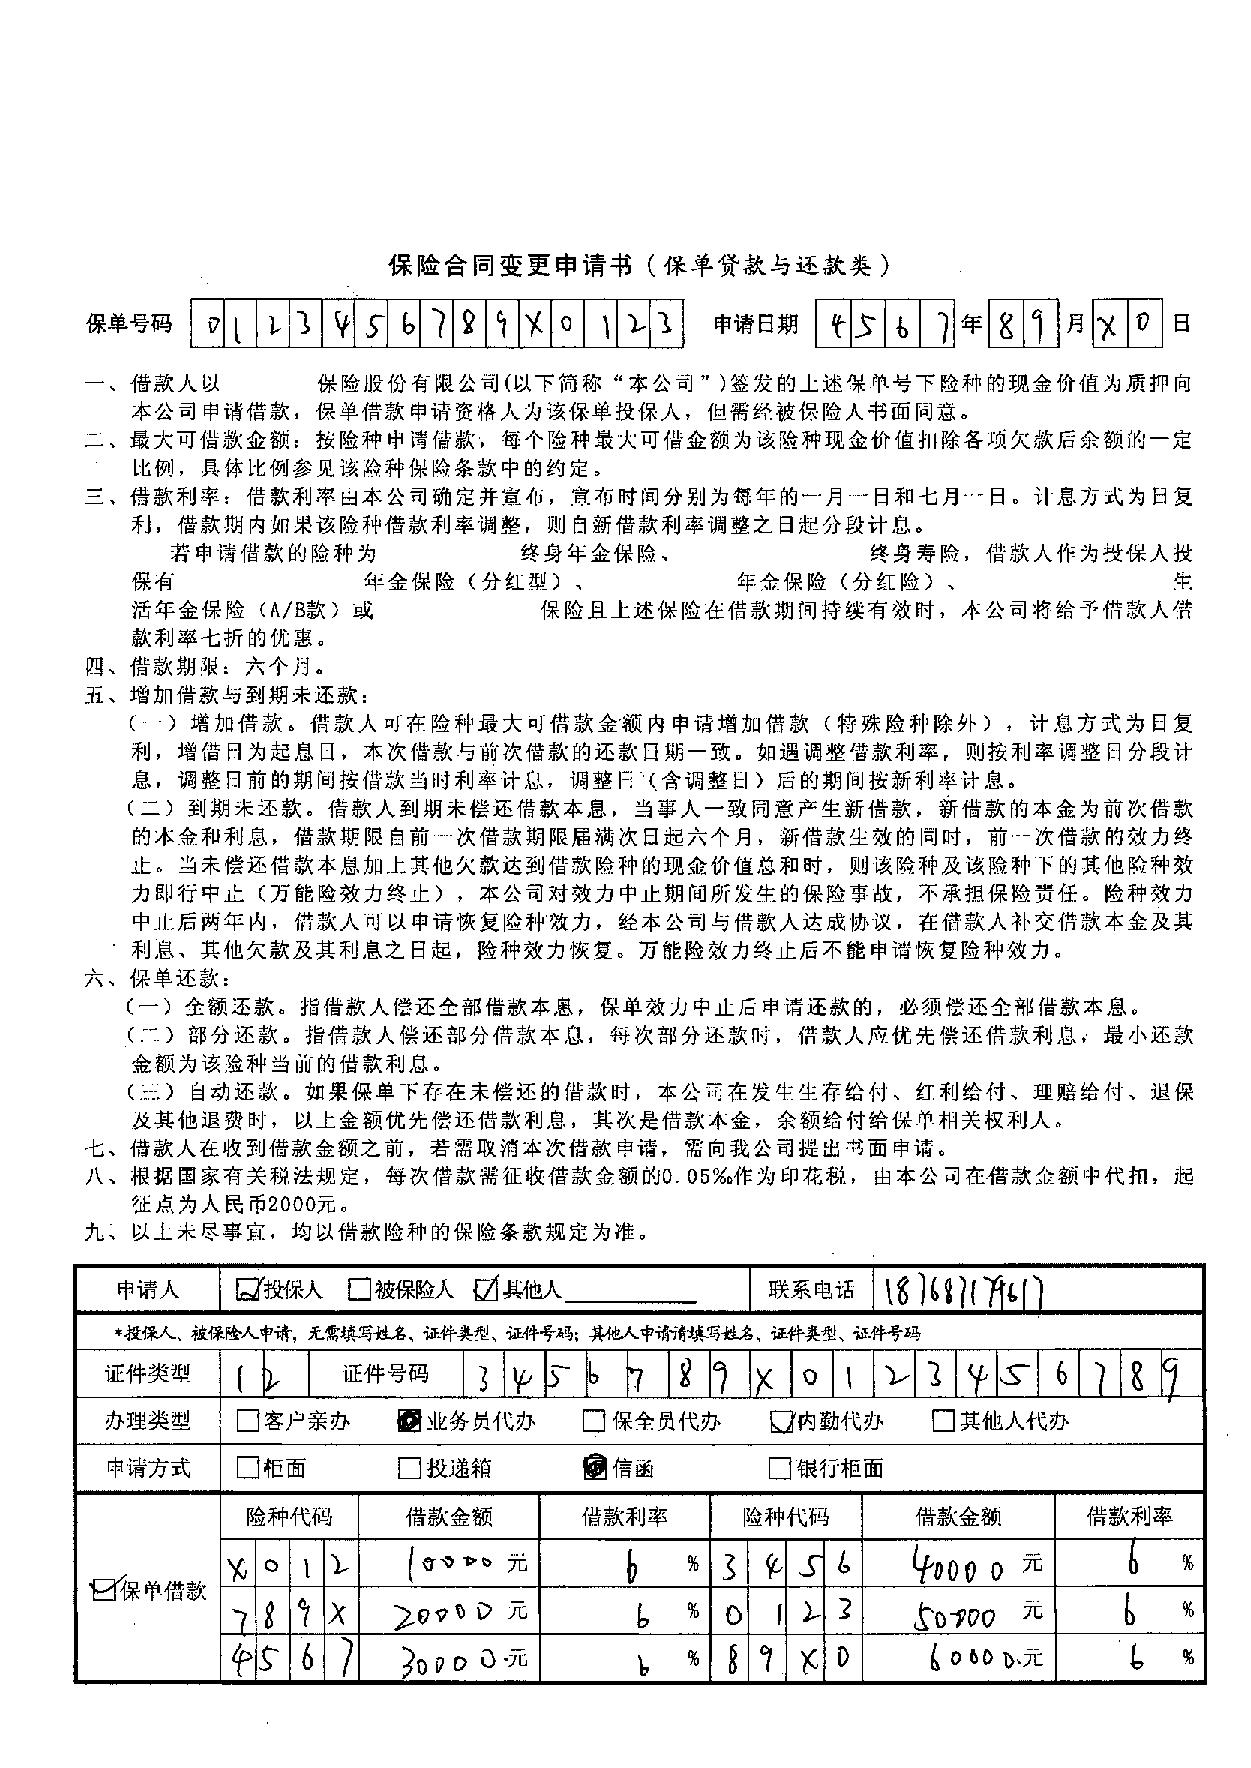 保险合同变更申请书（保单贷款与还款类）
保单号码 0 1 2 3 4 5 6 7 8 9 X 0 1 2 3 申请日期 4 5 6 7 年 8 9 月 X 0 日
一、借款人以 保险股份有限公司(以下简称“本公司”)签发的上述保单号下险种的现金价值为质押向
本公司申请借款，保单借款申请资格人为该保单投保人，但需经被保险人书面同意。
二、最大可借款金额：按险种申请借款，每个险种最大可借金额为该险种现金价值扣除各项欠款后余额的一定
比例，具体比例参见该险种保险条款中的约定。
三、借款利率：借款利率由本公司确定并宣布，宣布时间分别为每年的一月一日和七月一日。计息方式为日复
利，借款期内如果该险种借款利率调整，则自新借款利率调整之日起分段计息。
若申请借款的险种为 终身年金保险、 终身寿险，借款人作为投保人投
保有 年金保险（分红型）、 年金保险（分红险）、 生
活年金保险（A/B款）或 保险且上述保险在借款期间持续有效时，本公司将给予借款人借
款利率七折的优惠。
四、借款期限：六个月。
五、增加借款与到期未还款：
（一）增加借款。借款人可在险种最大可借款金额内申请增加借款（特殊险种除外），计息方式为日复
利，增借日为起息日，本次借款与前次借款的还款日期一致。如遇调整借款利率，则按利率调整日分段计
息，调整日前的期间按借款当时利率计息，调整日（含调整日）后的期间按新利率计息。
（二）到期未还款。借款人到期未偿还借款本息，当事人一致同意产生新借款，新借款的本金为前次借款
的本金和利息，借款期限自前一次借款期限届满次日起六个月，新借款生效的同时，前一次借款的效力终
止。当未偿还借款本息加上其他欠款达到借款险种的现金价值总和时，则该险种及该险种下的其他险种效
力即行中止（万能险效力终止），本公司对效力中止期间所发生的保险事故，不承担保险责任。险种效力
中止后两年内，借款人可以申请恢复险种效力，经本公司与借款人达成协议，在借款人补交借款本金及其
利息、其他欠款及其利息之日起，险种效力恢复。万能险效力终止后不能申请恢复险种效力。
六、保单还款：
（一）全额还款。指借款人偿还全部借款本息，保单效力中止后申请还款的，必须偿还全部借款本息。
（二）部分还款。指借款人偿还部分借款本息，每次部分还款时，借款人应优先偿还借款利息，最小还款
金额为该险种当前的借款利息。
（三）自动还款。如果保单下存在未偿还的借款时，本公司在发生生存给付、红利给付、理赔给付、退保
及其他退费时，以上金额优先偿还借款利息，其次是借款本金，余额给付给保单相关权利人。
七、借款人在收到借款金额之前，若需取消本次借款申请，需向我公司提出书面申请。
八、根据国家有关税法规定，每次借款需征收借款金额的0.05‰作为印花税，由本公司在借款金额中代扣，起
征点为人民币2000元。
九、以上未尽事宜，均以借款险种的保险条款规定为准。
申请人 投保人 被保险人 其他人 联系电话 187687179617
*投保人、被保险人申请，无需填写姓名、证件类型、证件号码；其他人申请请填写姓名、证件类型、证件号码
证件类型 1 2 证件号码 3 4 5 6 7 8 9 X 0 1 2 3 4 5 6 7 8 9
办理类型 客户亲办 业务员代办 保全员代办 内勤代办 其他人代办
申请方式 柜面 投递箱 信函 银行柜面
保单借款 险种代码 借款金额 借款利率 险种代码 借款金额 借款利率
X 0 1 2 10000 元 6 % 3 4 5 6 40000 元 6 %
7 8 9 X 20000 元 6 % 0 1 2 3 50000 元 6 %
4 5 6 7 30000 元 6 % 8 9 X 0 60000 元 6 %